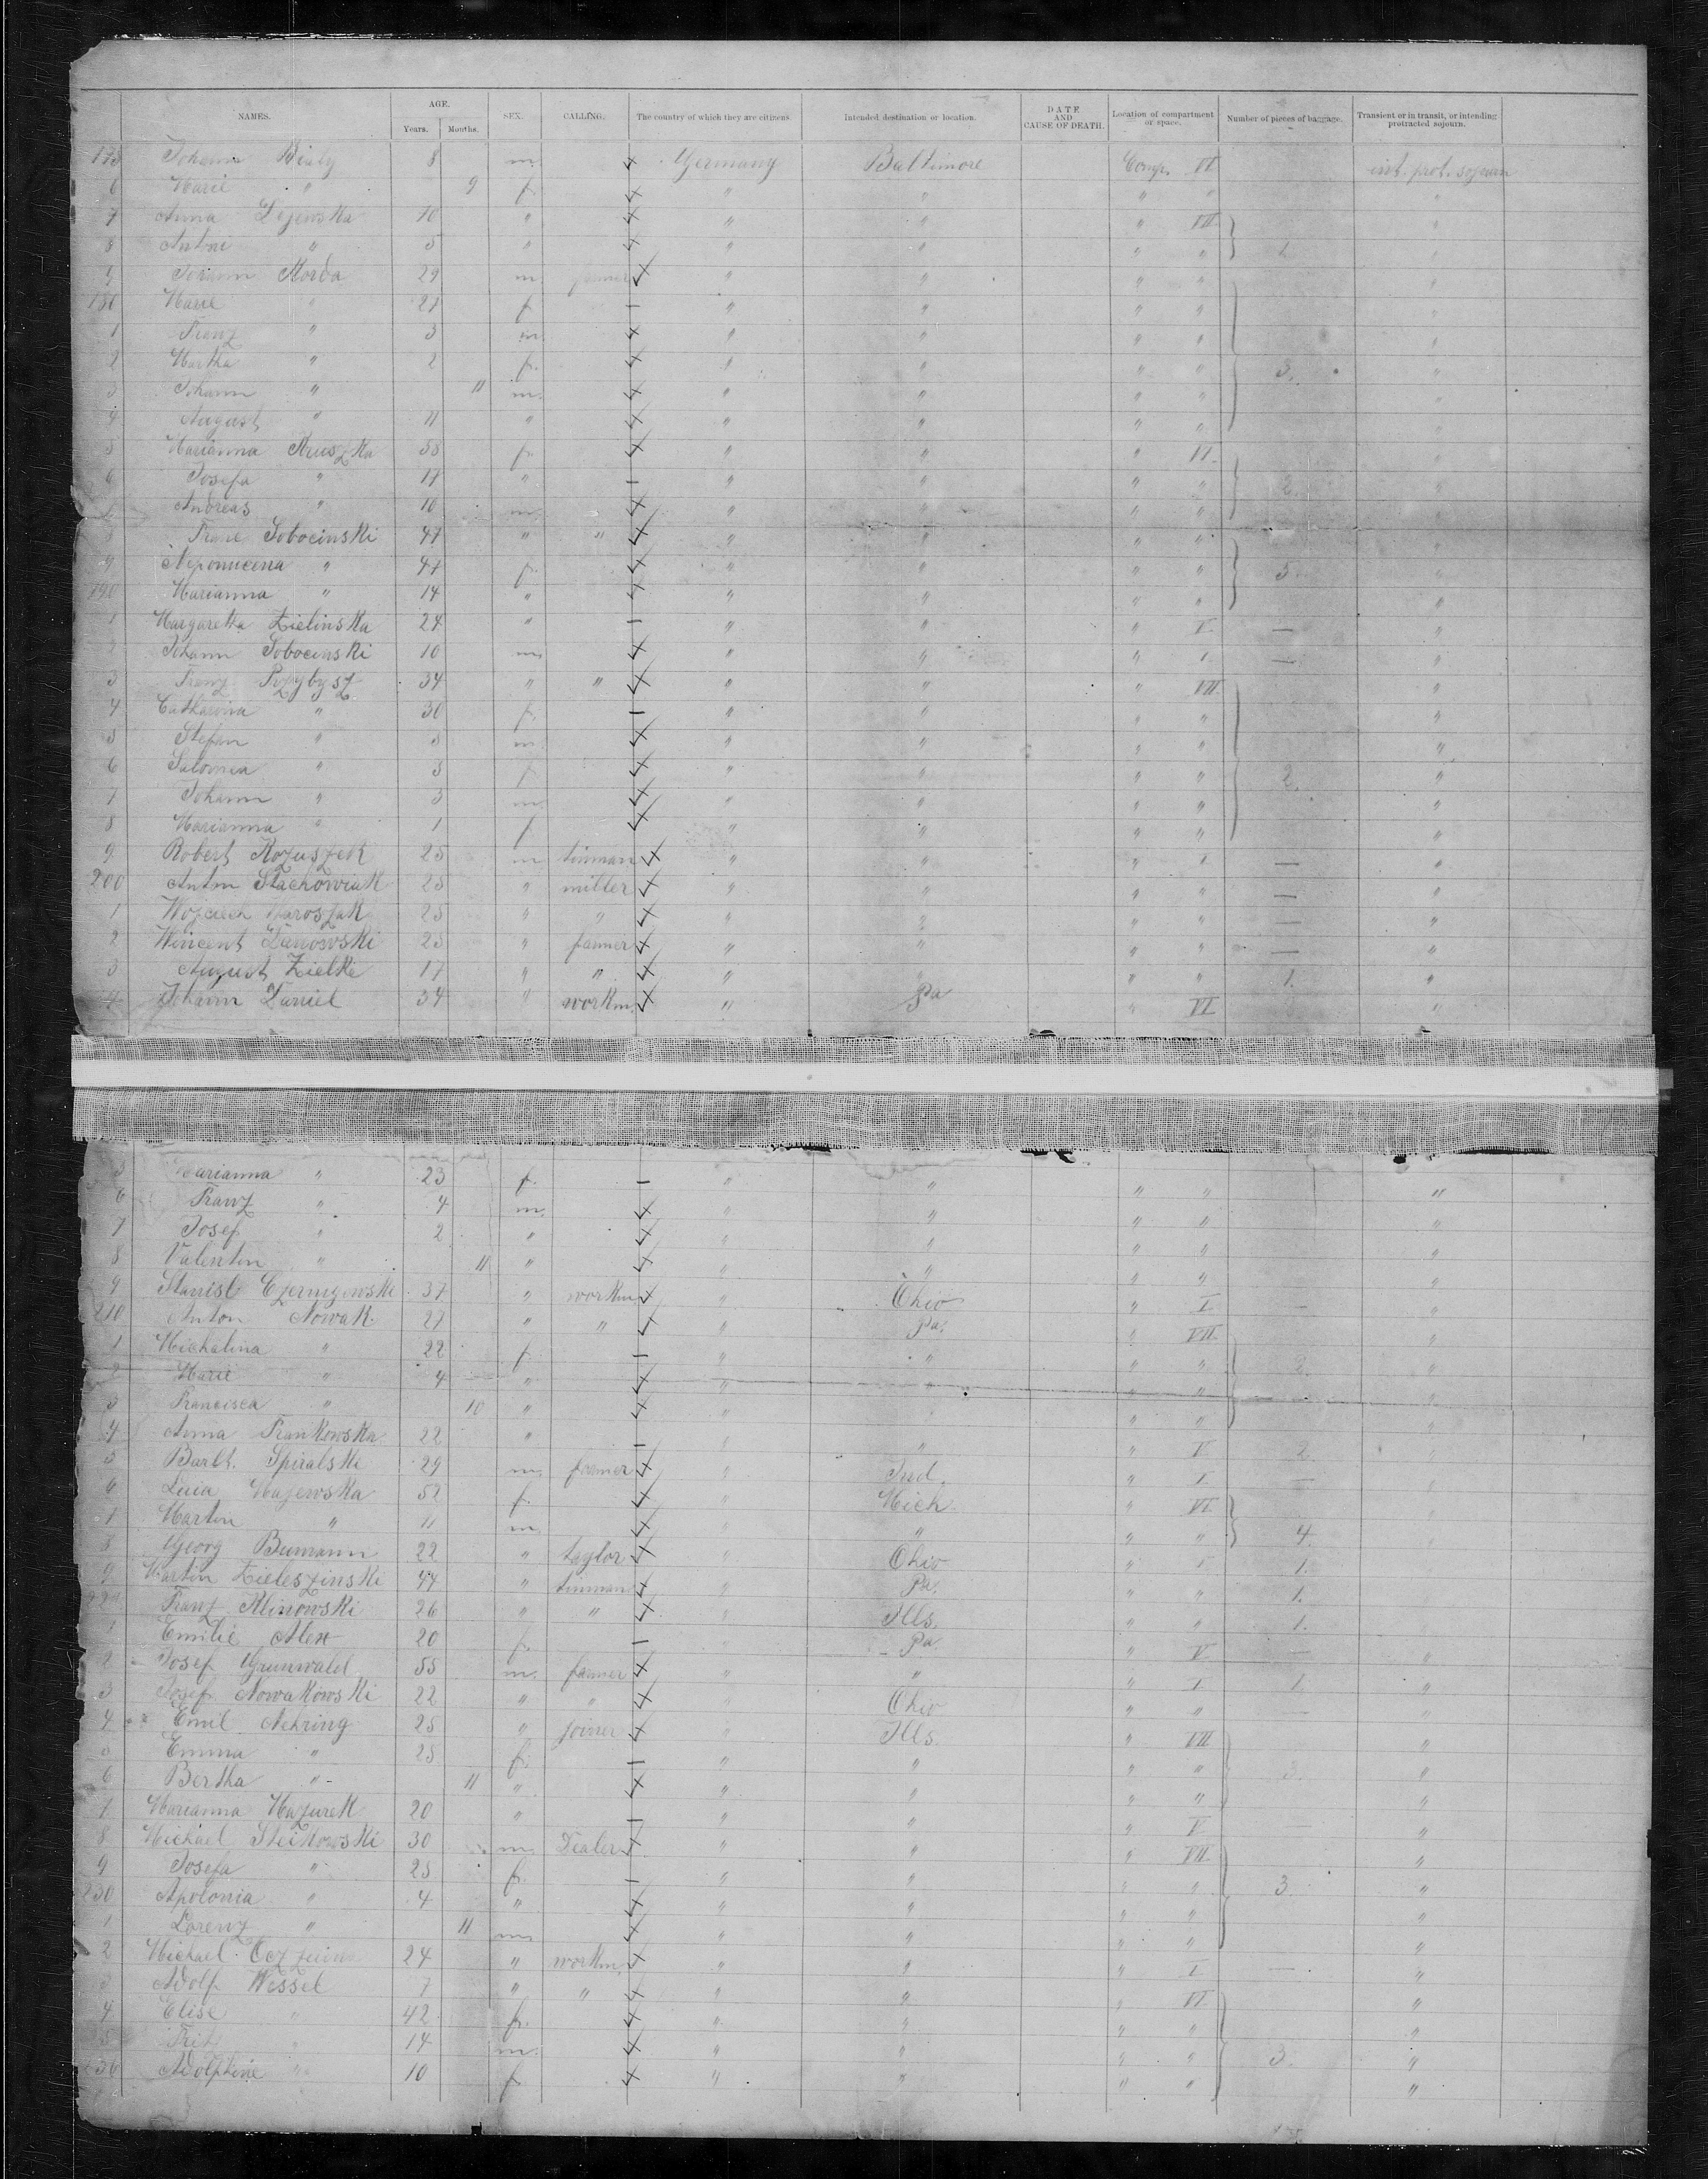 NAMES. AGE. Years. Months. SEX. CALLING. The country of which they are citizens. Intended destination or location. DATE AND CAUSE OF DEATH. Location of compartment or space. Number of pieces of baggage. Transient or in transit, or intending protracted sojourn.
Johann Bialy 8 m. Germany Baltimore Comp. VI int. prot. sojourn
6 Marie " 9 f. " " " " "
7 Anna 10 " " " " VII "
8 " 5 " " " " " 1. "
9 Johann Korda 29 m. farmer " " " " "
180 Marie " 27 f. " " " " "
1 Franz " 3 m. " " " " "
2 Martha " 2 f. " " " " 3. "
3 Johann " 11 m. " " " " "
4 August " 11 " " " " " "
5 Marianna Kruszka 58 f. " " " VI. "
6 Josefa " 17 " " " " " 2. "
Andreas " 10 m. " " " " "
Sobocinski 47 " " " " " " "
9 Nepomucena " 47 f. " " " " 5. "
190 Marianna " 14 " " " " " "
1 Margaretha Zielinska 24 " " " " V — "
2 Johann Sobocinski 10 m. " " " I — "
3 Franz Przybysz 34 " " " " " VII "
4 Catharina " 30 f. " " " " "
5 Stefan " 5 m. " " " " "
6 Salomea " 3 f. " " " " 2. "
7 Johann " 3 m. " " " " "
8 Marianna " 1 f. " " " " "
9 Robert 25 m tinman " " " I — "
200 Anton Stachowiak 25 " miller " " " " — "
1 Wojciech 25 " " " " " " — "
2 Vincent 25 " farmer " " " " — "
3 August Zielke 17 " " " " " " 1. "
4 Johann Daniel 34 " workm. " Pa " VI "
5 Marianna " 23 f. " " " " "
6 Franz " 4 m. " " " " "
7 Josef " 2 " " " " " "
8 Valentin " 11 " " " " " "
9 Stanisl. 37 " workm " Ohio " I — "
210 Anton Nowak 27 " " " Pa. " VII "
1 Michalina " 22 f. " " " " 2. "
2 Marie " 4 " " " "
3 Francisca " 10 " " " " "
4 Anna Frankowska 22 " " " V 2. "
5 Barth. Spiralski 29 m. farmer " Ind. " I — "
6 Lucia Majewska 52 f. " Mich. " VI
Martin " 11 m. " " " " 4.
8 Georg Bumann 22 " taylor " Ohio " I 1.
9 Martin 44 " tinman " Pa. " " 1.
Franz Klinowski 26 " " " Ills. " " 1.
1 Emilie Alex 20 f. Pa " V — "
2 Josef Grunwald 55 m. farmer " " " I 1. "
3 Josef Nowakowski 22 " " " Ohio " " — "
4 Emil Nehring 25 " joiner " Ills. " VII "
Emma " 25 f. " " " " 3. "
6 Bertha " 11 " " " " " "
Marianna Mazurek 20 " " " " V — "
8 Michael 30 m. Dealer " " " VII "
9 Josefa " 25 f. " " " " 3. "
230 Apolonia " 4 " " " " " "
1 Lorenz " 11 m. " " " " "
2 Michael 24 " workm. " " " I — "
3 Adolf Wessel 7 " " " " " VI "
4 Elise " 42 f. " " " " "
5 " 14 m. " " " " 3. "
Adolphine " 10 f. " " " " "